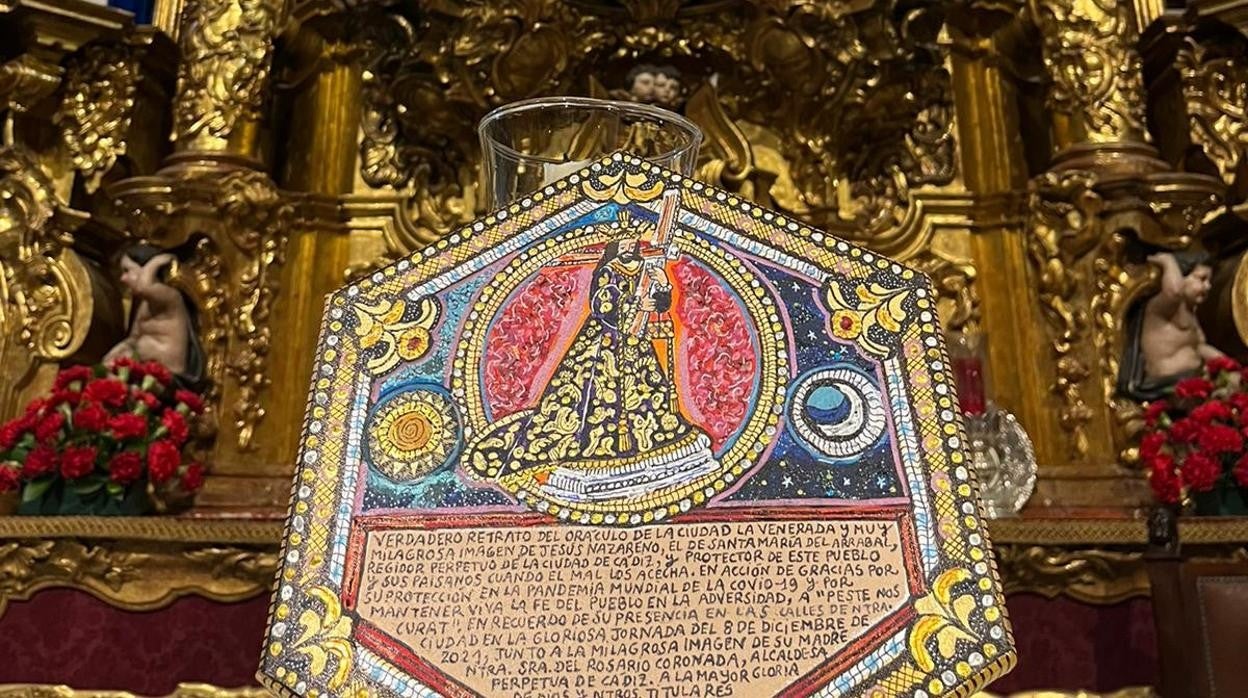 VERDADERO RETRATO DEL ORACULO DE LA CIUDAD LA VENERADA Y MUY
MILAGROSA IMAGEN DE JESUS NAZARENO, EL DE SANTA MARÍA DEL ARRABAL,
REGIDOR PERPETUO DE LA CIUDAD DE CADIZ, Y PROTECTOR DE ESTE PUEBLO
Y SUS PAISANOS CUANDO EL MAL LOS ACECHA, EN ACCIÓN DE GRACIAS POR
SU PROTECCIÓN EN LA PANDEMIA MUNDIAL DE LA COVID-19 Y POR
MANTENER VIVA LA FE DEL PUEBLO EN LA ADVERSIDAD, A "PESTE NOS
CURAT" EN RECUERDO DE SU PRESENCIA EN LAS CALLES DE NTRA.
CIUDAD EN LA GLORIOSA JORNADA DEL 8 DE DICIEMBRE DE
2021, JUNTO A LA MILAGROSA IMAGEN DE SU MADRE
NTRA. SRA. DEL ROSARIO CORONADA, ALCALDESA
PERPETUA DE CADIZ. A LA MAYOR GLORIA
DE DIOS Y NTROS. TITULARES